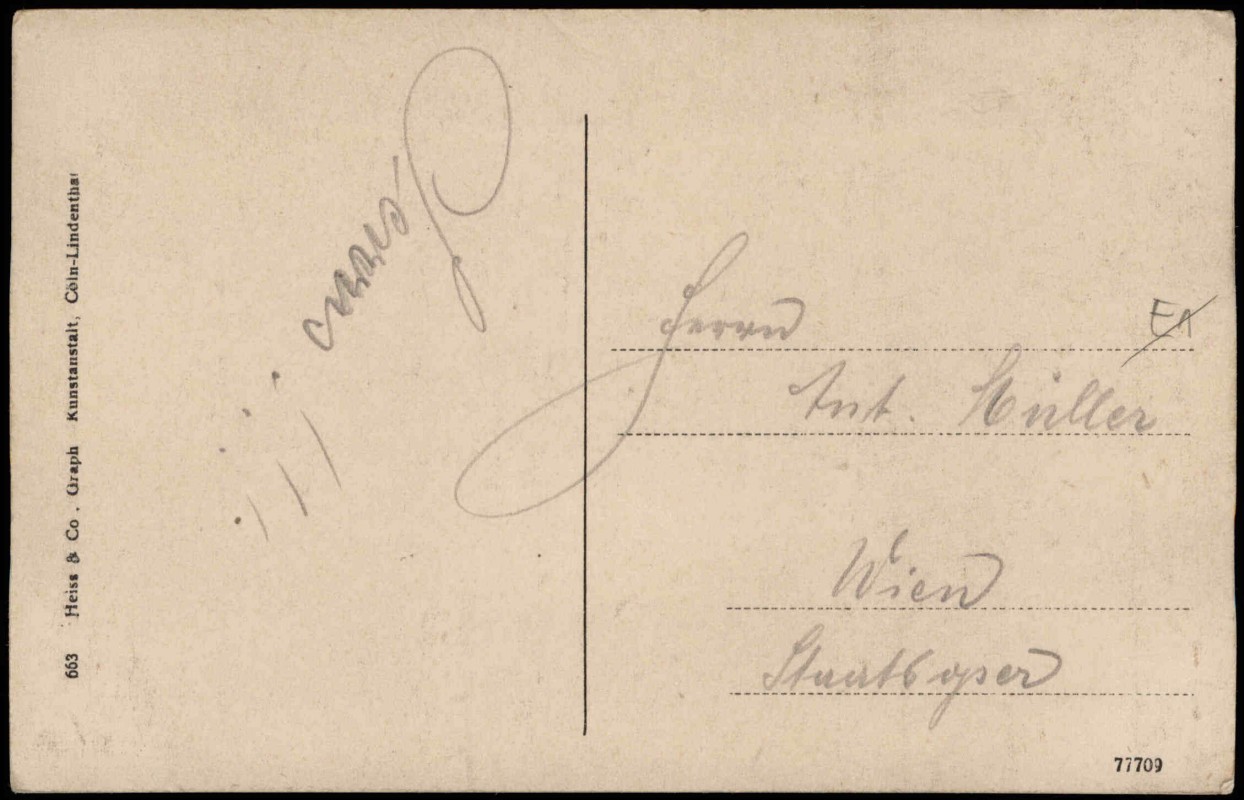 663 Heiss & Co. Graph Kunstanstalt, Cöln-Lindenthal
Herrn
E1
Ant. Müller
Wien
Staatsoper
77709